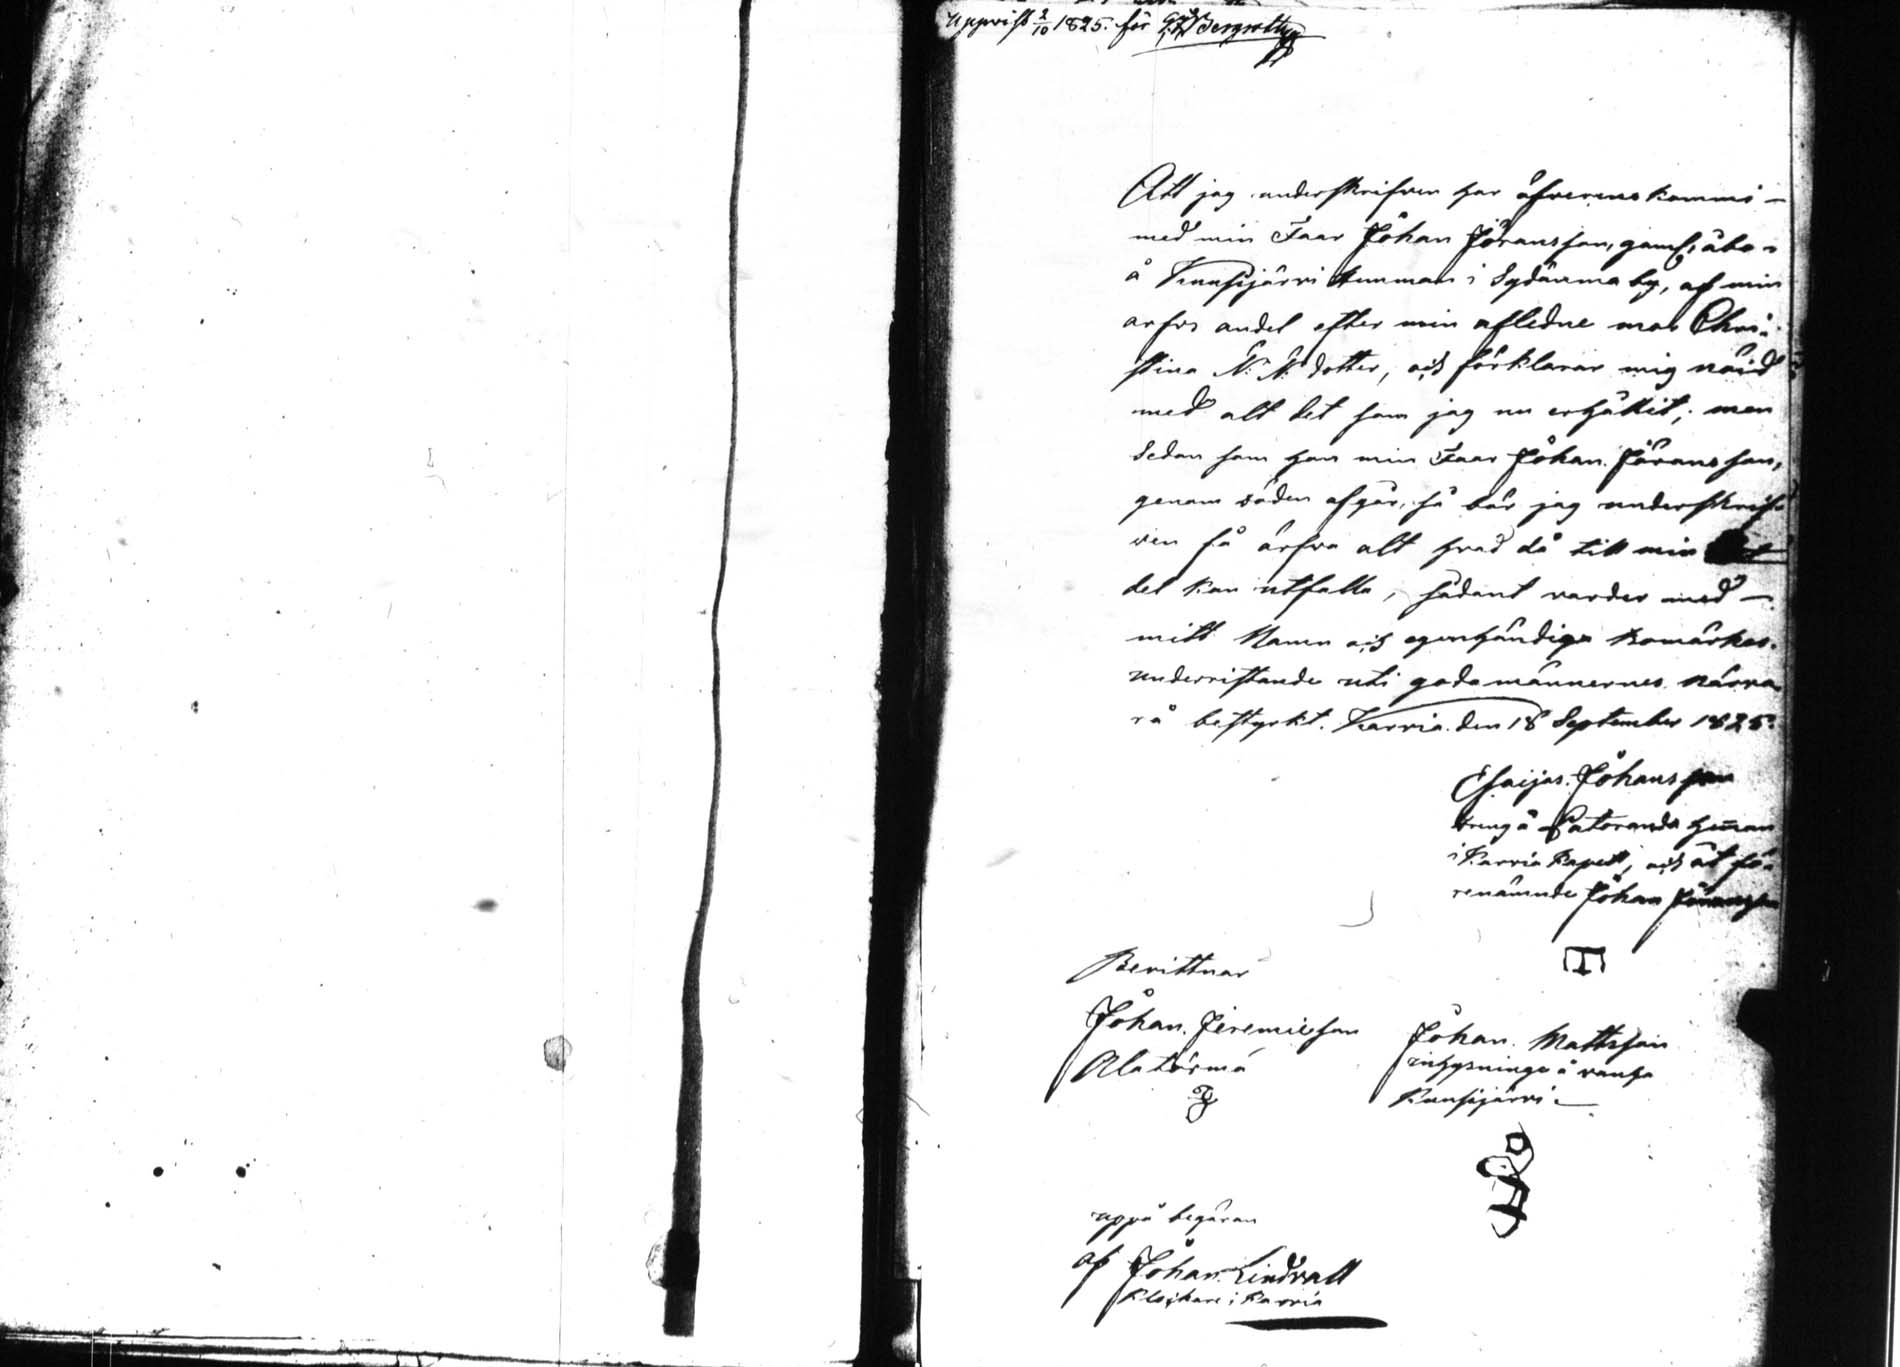 uppvist 2/10 1825. för Bergroth
Att jag underskrifven har åfverenskommi
med min Faar Johan Jöransson, gaml. åbo
å Kuusijärvi Hemman i Sydänma by, af min
arfvs andel efter min afledne mor Chri-
stina N: N: dotter, och förklarar mig nöid
med alt det som jag nu erhållit, men
sedan som han min Faar Johan Jöransson,
genom döden afgår, så bör jag underskrif-
ven få ärfva alt hvad då till min
del kan utfalla, sådant varder med
mitt Namn och egenhändiga bomärkes
underristande uti godo männernes närva
rå bestyrkt. Karvia den 18 September 1825.
Esaijas Johansson
dreng å hemman
i Karvia Kapell, och åt fö-
renämnde Johan Jöransson
Bevittnar
Johan Jeremiesson
Alatörmä
Johan Mattsson
inhysninge å
Kuusijärvi
uppå begäran
af Johan Lindvall
Klockare i Karvia